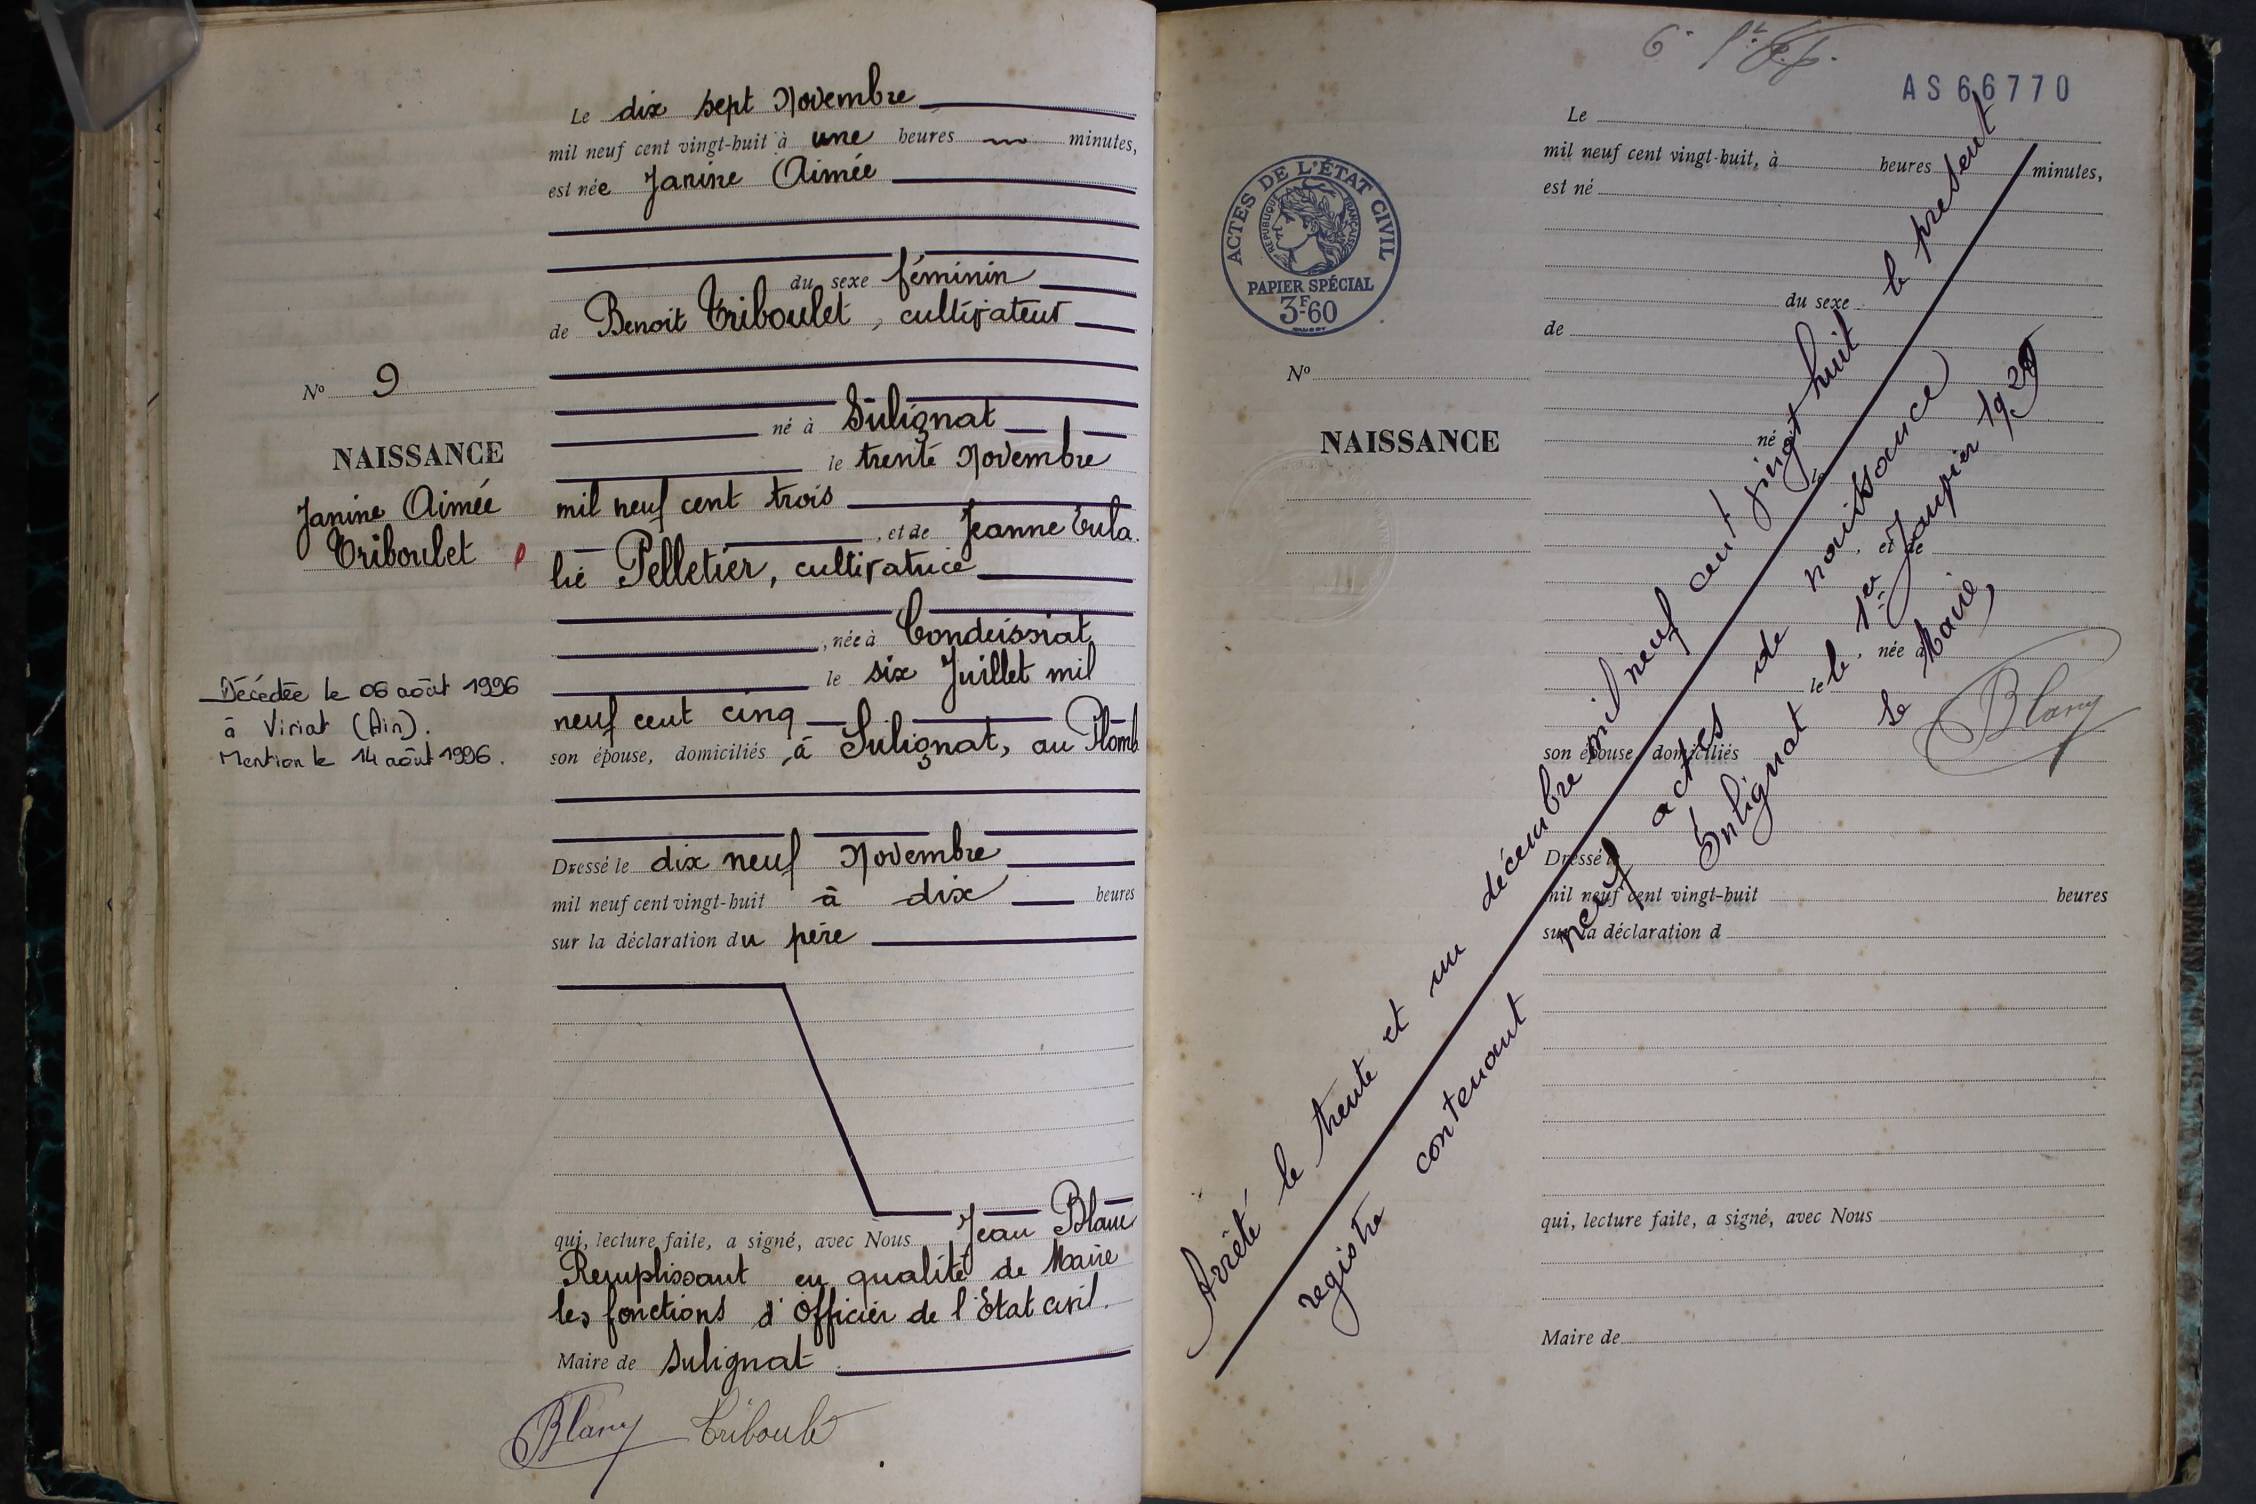 Le dix sept Novembre
mil neuf cent vingt-huit à une heures minutes,
est née Janine Aimée
du sexe féminin
de Benoit Triboulet, cultivateur
né à Sulignat
le trente Novembre
mil neuf cent trois
, et de Jeanne Eula
lie Pelletier, cultivatrice
, née à Condeissiat
le six Juillet mil
neuf cent cinq
son épouse, domiciliés, à Sulignat, au Plomb
Dressé le dix neuf Novembre
mil neuf cent vingt-huit à dix heures
sur la déclaration du père
qui, lecture faite, a signé, avec Nous Jean Blanc
Remplissant en qualité de Maire
les fonctions d'Officier de l'Etat civil.
Maire de Sulignat
Blanc Triboulet
N° 9
NAISSANCE
Janine Aimée
Triboulet
Décédée le 06 août 1996
à Viriat (Ain).
Mention le 14 août 1996.
6e
AS66770
ACTES DE L'ÉTAT CIVIL
RÉPUBLIQUE FRANÇAISE
PAPIER SPÉCIAL
3F60
N°
NAISSANCE
Le
mil neuf cent vingt-huit, à heures minutes,
est né
du sexe
de
né
, et de
, née à
le
son épouse domiciliés
Dressé le
mil neuf cent vingt-huit heures
sur la déclaration d
qui, lecture faite, a signé, avec Nous
Maire de
Arrêté le trente et un décembre mil neuf cent vingt huit le présent
registre contenant neuf actes de naissance
Sulignat le 1er Janvier 1929
Le Maire,
Blanc